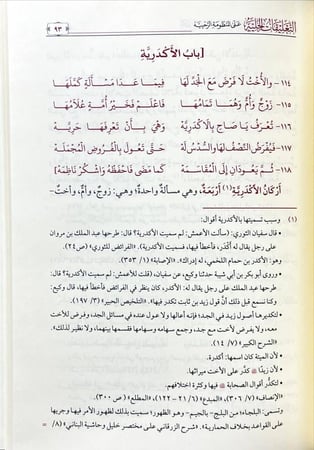 التعليقات الجلية
على المنظومة الرحبية
٩٣
[باب الأكدرية
١١٤- والأخت لا فرض مع الجد لها فيما عدا مسألة كملها
١١٥- زوج وأم وهما تمامها فاعلم فخير أمة علامها
١١٦- تعرف يا صاح بالأكدرية وهي بأن تعرفها حرية
١١٧- فيفرض النصف لها والسدس له حتى تعول بالفروض المجملة
١١٨- ثم يعودان إلى المقاسمة كما مضى فاحفظه واشكر ناظمه]
أركان الأكدرية (١) أربعة، وهي مسألة واحدة؛ وهي: زوج، وأم، وأخت-
(١) وسبب تسميتها بالأكدرية أقوال:
• قال سفيان الثوري: (سألت الأعمش: لم سميت الأكدرية؟ قال: طرحها عبد الملك بن مروان
على رجل يقال له أكدر، فأخطأ فيها، فسميت الأكدرية). «الفرائض للثوري» (ص٢٤)،
وهو: الأكدر بن حمام اللخمي، له إدراك». «الإصابة» (٦/ ٣٥٣).
• وروى أبو بكر بن أبي شيبة حدثنا وكيع، عن سفيان: (قلت للأعمش: لم سميت الأكدرية؟ قال:
طرحها عبد الملك على رجل يقال له: الأكدر، كان ينظر في الفرائض فأخطأ فيها، قال وكيع:
وكنا نسمع قبل ذلك أن قول زيد بن ثابت تكدر فيها». «التلخيص الحبير» (٣/ ١٩٧).
• لتكديرها أصول زيد في الجد؛ فإنه أعالها ولا عول عنده في مسائل الجد، وفرض للأخت
معه، ولا يفرض لأخت مع جد، وجمع سهامه وسهامها فقسمها بينهما، ولا نظير لذلك».
«الشرح الكبير» (٧/ ١٤).
• لأن الميتة كان اسمها: أكدرة.
• لأن زيدًا كدر على الأخت ميراثها.
• لتكدر أقوال الصحابة فيها وكثرة اختلافهم.
«الإنصاف» (٧/ ٣٠٦)، «المبدع» (٦/ ٢١- ١٢٢)، «المطلع» (ص ٣٠٠).
وتسمى: البلجاء؛ من البلج- بالجيم- وهو الظهور؛ سميت بذلك لظهور الأمر فيها وجريها
على القواعد بخلاف الحمارية. «شرح الزرقاني على مختصر خليل وحاشية البناني» (٨/ =